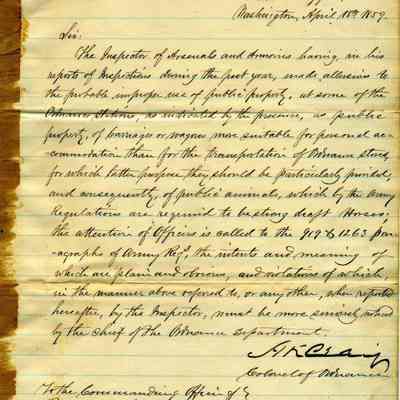 Washington, April 18th 1859.
Sir:
The Inspector of Arsenals and Armories having in his
reports of Inspections during the past year, made allusion to
the probable improper use of public property, at some of the
Ordnance Stations, as indicated by the presence, as public
property, of carriages or wagons more suitable for personal ac-
commodation than for the transportation of Ordnance stores,
for which latter purpose they should be particularly provided;
and consequently of public animals, which by the Army
Regulations are required to be strong draft Horses;
the attention of Officers is called to the 919 & 1263 par-
agraphs of Army Regs, the intents and meaning of
which are plain and obvious, and violations of which
in the manner above referred to, or any other, when reported
hereafter, by the Inspector, must be more seriously noticed
by the chief of the Ordnance department.
H K Craig
Colonel of Ordnance
To the Commanding Officer of